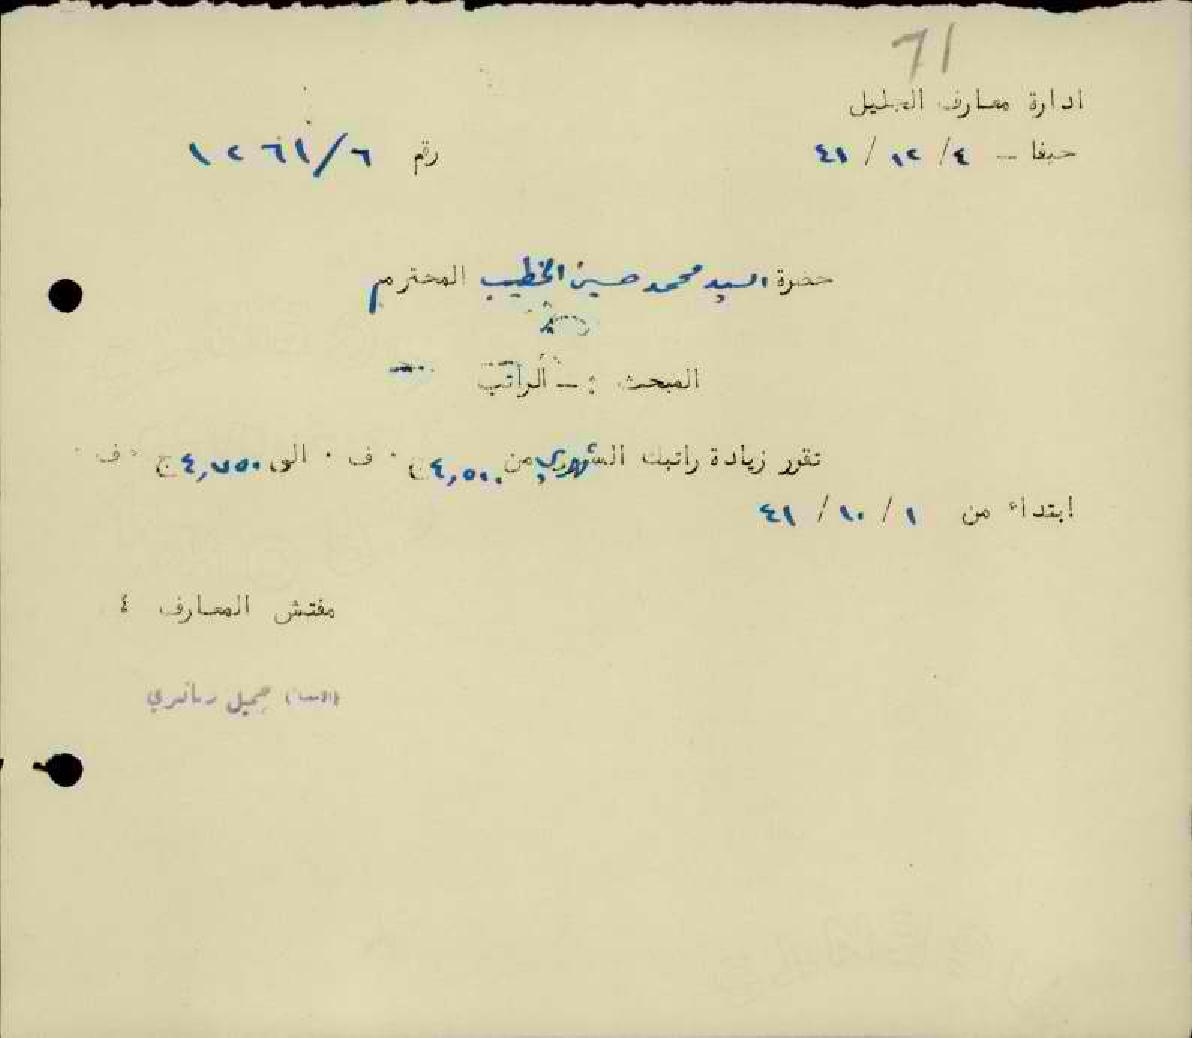 71
ادارة معارف الجليل
حيفا – ٤/ ١٢ / ٤١
رقم ١٢٦١/٦
حضرة السيد محمد حسين الخطيب المحترم
المبحث :– الراتب
تقرر زيادة راتبك الشهري من ٤,٥٠٠ ج ٠ ف ٠ الى ٤,٧٥٠ ج ٠ ف ٠
ابتداء من ١ / ١٠ / ٤١
مفتش المعارف ٤
جميل